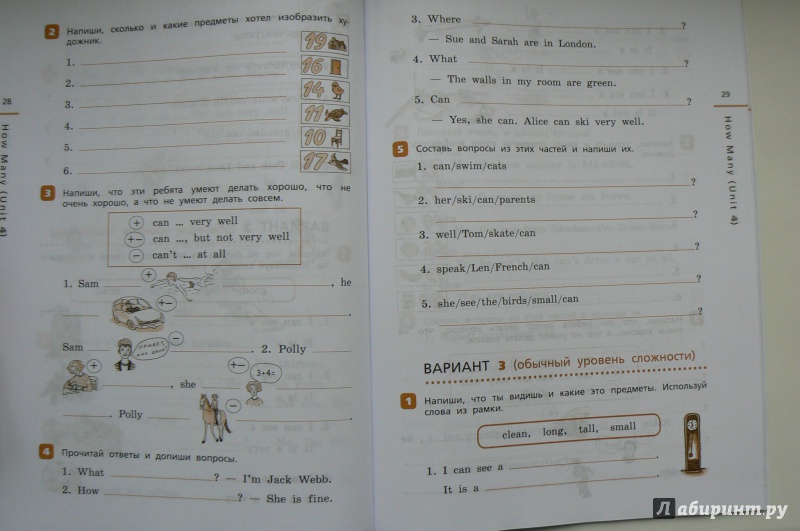 28
How Many (Unit 4)
2 Напиши, сколько и какие предметы хотел изобразить ху-
дожник.
1.
2.
3.
4.
5.
6.
19
16
14
11
10
17
3 Напиши, что эти ребята умеют делать хорошо, что не
очень хорошо, а что не умеют делать совсем.
+ can ... very well
+− can ..., but not very well
− can't ... at all
1. Sam + , he
+− .
Sam − . 2. Polly
+ , she +− 3+4=
. Polly − .
4 Прочитай ответы и допиши вопросы.
1. What ? — I'm Jack Webb.
2. How ? — She is fine.
3. Where ?
— Sue and Sarah are in London.
4. What ?
— The walls in my room are green.
5. Can ?
— Yes, she can. Alice can ski very well.
29
How Many (Unit 4)
5 Составь вопросы из этих частей и напиши их.
1. can/swim/cats
?
2. her/ski/can/parents
?
3. well/Tom/skate/can
?
4. speak/Len/French/can
?
5. she/see/the/birds/small/can
?
ВАРИАНТ 3 (обычный уровень сложности)
1 Напиши, что ты видишь и какие это предметы. Используй
слова из рамки.
clean, long, tall, small
1. I can see a .
It is a .
Лабиринт.ру